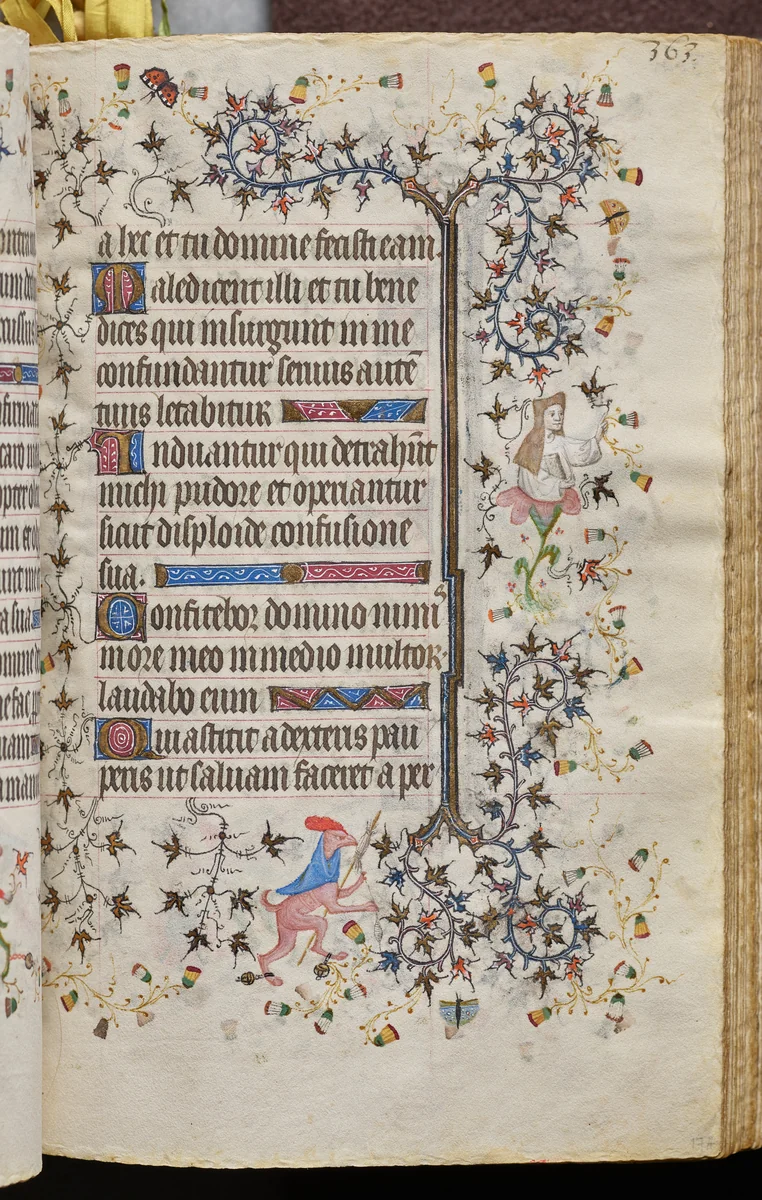 363.
a hec et tu domine fecisti eam.
Maledicent illi et tu bene
dices qui insurgunt in me
confundantur seruus autē
tuus letabitur
Induantur qui detrahūt
michi pudore et operiantur
sicut disploide confusione
sua.
Confitebor domino nimis
in ore meo in medio multoꝝ
laudabo eum
Qui astitit a dexteris pau
peris ut saluam faceret a per